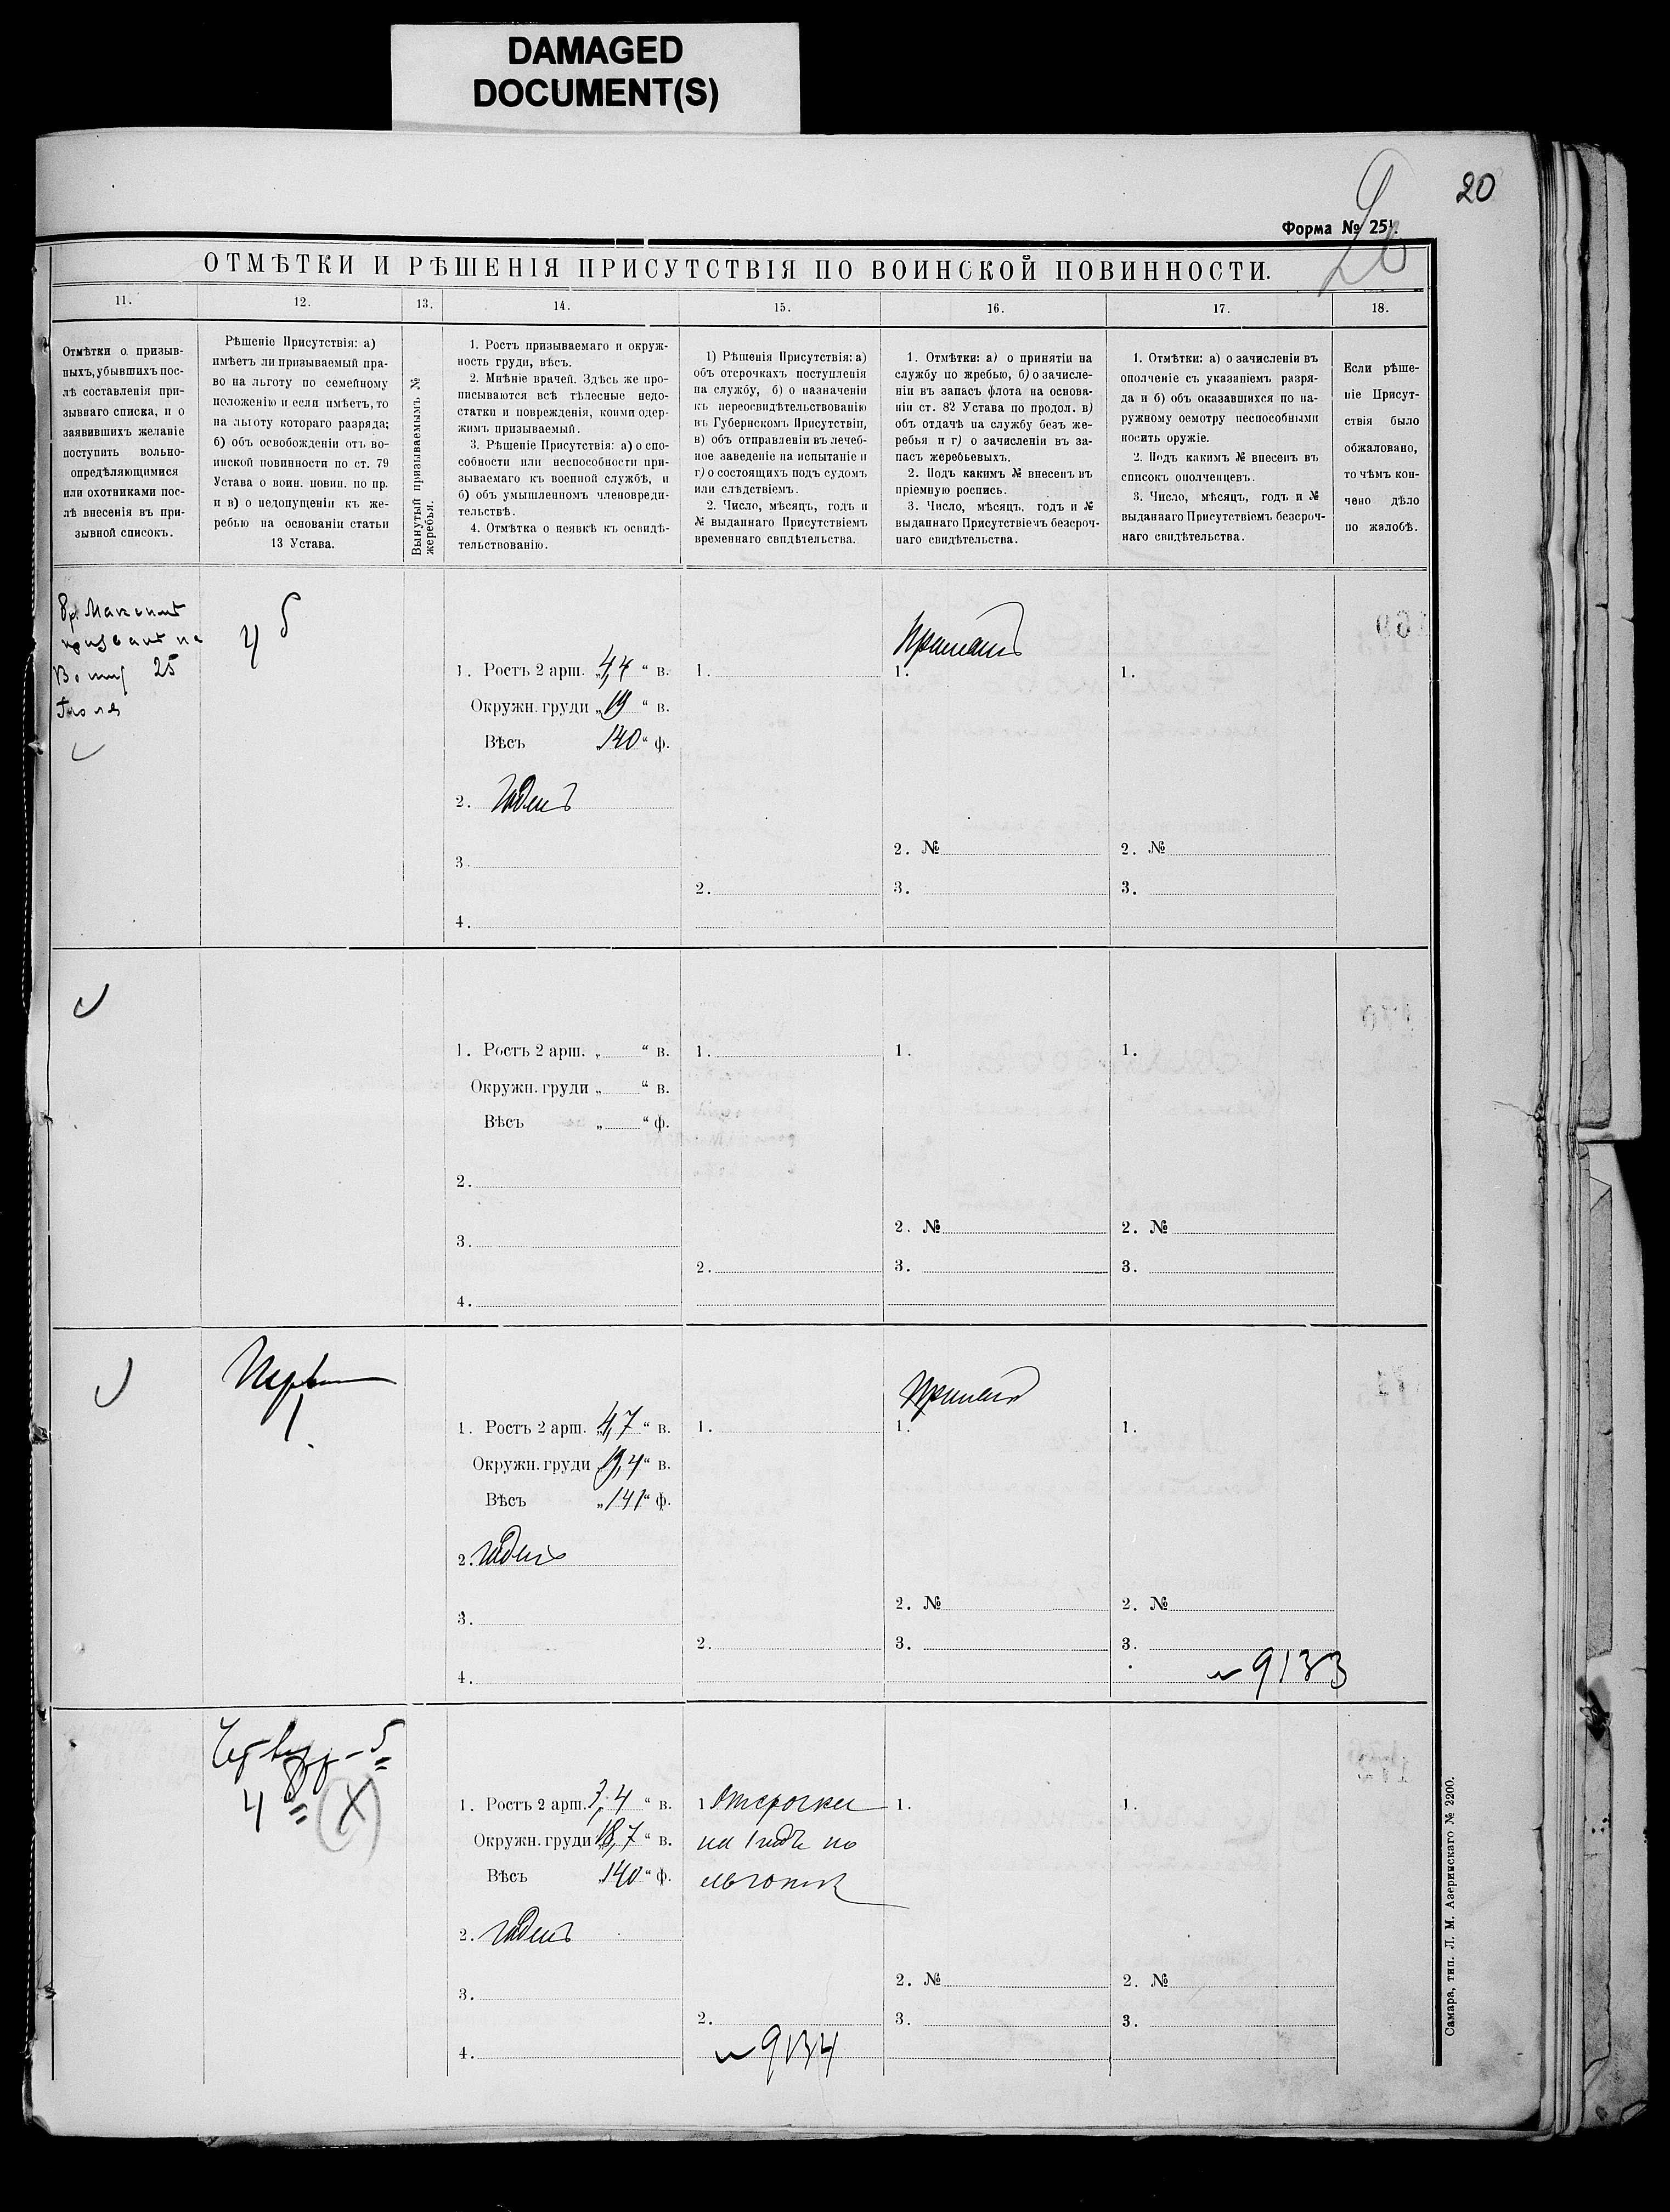 DAMAGED
DOCUMENT(S)
20
Форма № 25
20
ОТМѢТКИ И РѢШЕНІЯ ПРИСУТСТВІЯ ПО ВОИНСКОЙ ПОВИННОСТИ.
11.
12.
13.
14.
15.
16.
17.
18.
Отмѣтки о призыв-
ныхъ, убывшихъ пос-
лѣ составленія при-
зывнаго списка, и о
заявившихъ желаніе
поступить вольно-
опредѣляющимися
или охотниками пос-
лѣ внесенія въ при-
зывной списокъ.
Рѣшеніе Присутствія: а)
имѣетъ ли призываемый пра-
во на льготу по семейному
положенію и если имѣетъ, то
на льготу котораго разряда;
б) объ освобожденіи отъ во-
инской повинности по ст. 79
Устава о воин. повин. по пр.
и в) о недопущеніи къ же-
ребью на основаніи статьи
13 Устава.
Вынутый призываемымъ №
жеребья.
1. Ростъ призываемаго и окруж-
ность груди, вѣсъ.
2. Мнѣніе врачей. Здѣсь же про-
писываются всѣ тѣлесные недо-
статки и поврежденія, коими одер-
жимъ призываемый.
3. Рѣшеніе Присутствія: а) о спо-
собности или неспособности при-
зываемаго къ военной службѣ, и
б) объ умышленномъ членовреди-
тельствѣ.
4. Отмѣтка о неявкѣ къ освидѣ-
тельствованію.
1) Рѣшенія Присутствія: а)
объ отсрочкахъ поступленія
на службу, б) о назначеніи
къ переосвидѣтельствованію
въ Губернскомъ Присутствіи,
в) объ отправленіи въ лечеб-
ное заведеніе на испытаніе и
г) о состоящихъ подъ судомъ
или слѣдствіемъ.
2. Число, мѣсяцъ, годъ и
№ выданнаго Присутствіемъ
временнаго свидѣтельства.
1. Отмѣтки: а) о принятіи на
службу по жребью, б) о зачисле-
ніи въ запасъ флота на основа-
ніи ст. 82 Устава по продол. в)
объ отдачѣ на службу безъ же-
ребья и г) о зачисленіи въ за-
пасъ жеребьевыхъ.
2. Подъ какимъ № внесенъ въ
пріемную роспись.
3. Число, мѣсяцъ, годъ и №
выданнаго Присутствіемъ безсроч-
наго свидѣтельства.
1. Отмѣтки: а) о зачисленіи въ
ополченіе съ указаніемъ разря-
да и б) объ оказавшихся по на-
ружному осмотру неспособными
носить оружіе.
2. Подъ какимъ № внесенъ въ
списокъ ополченцевъ.
3. Число, мѣсяцъ, годъ и №
выданнаго Присутствіемъ безсроч-
наго свидѣтельства.
Если рѣше-
ніе Присут-
ствія было
обжаловано,
то чѣмъ кон-
чено дѣло
по жалобѣ.
бр. Максимъ
призванъ на
25
4 б
1. Ростъ 2 арш. „4,4“ в.
Окружн. груди „19“ в.
Вѣсъ „140“ ф.
2. Годенъ
3.
4.
1.
2.
Принятъ
1.
2. №
3.
1.
2. №
3.
1. Ростъ 2 арш. „ “ в.
Окружн. груди „ “ в.
Вѣсъ „ “ ф.
2.
3.
4.
1.
2.
1.
2. №
3.
1.
2. №
3.
1
1. Ростъ 2 арш. „4,7“ в.
Окружн. груди „19,4“ в.
Вѣсъ „141“ ф.
2. Годенъ
3.
4.
1.
2.
Принятъ
1.
2. №
3.
1.
2. №
3.
№ 9133
4 (X)
1. Ростъ 2 арш. 3,4 “ в.
Окружн. груди 18,7 “ в.
Вѣсъ „140“ ф.
2. Годенъ
3.
4.
1 Отсрочка
на 1 годъ по
2.
№ 9134
1.
2. №
3.
1.
2. №
3.
Самара, тип. Л. М. Азеринскаго № 2200.